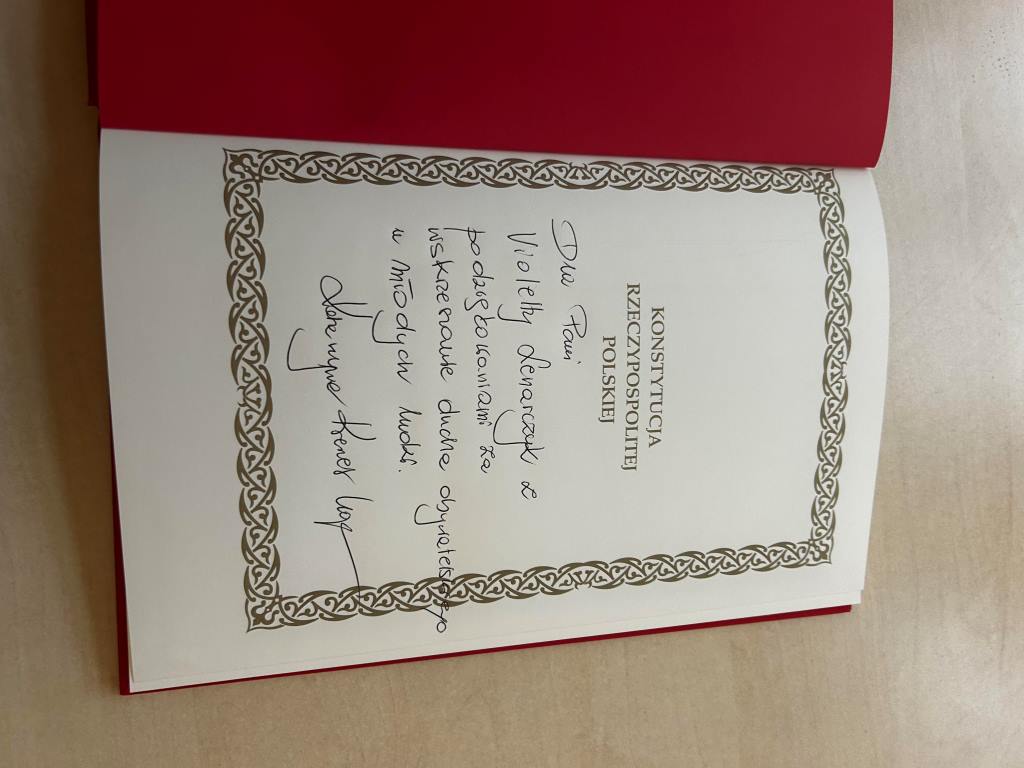 KONSTYTUCJA
RZECZYPOSPOLITEJ
POLSKIEJ
Dla Pani
Violetty Lenarczyk z
podziękowaniami za
wskrzeszanie ducha obywatelskiego
w młodych ludzi.
Katarzyna